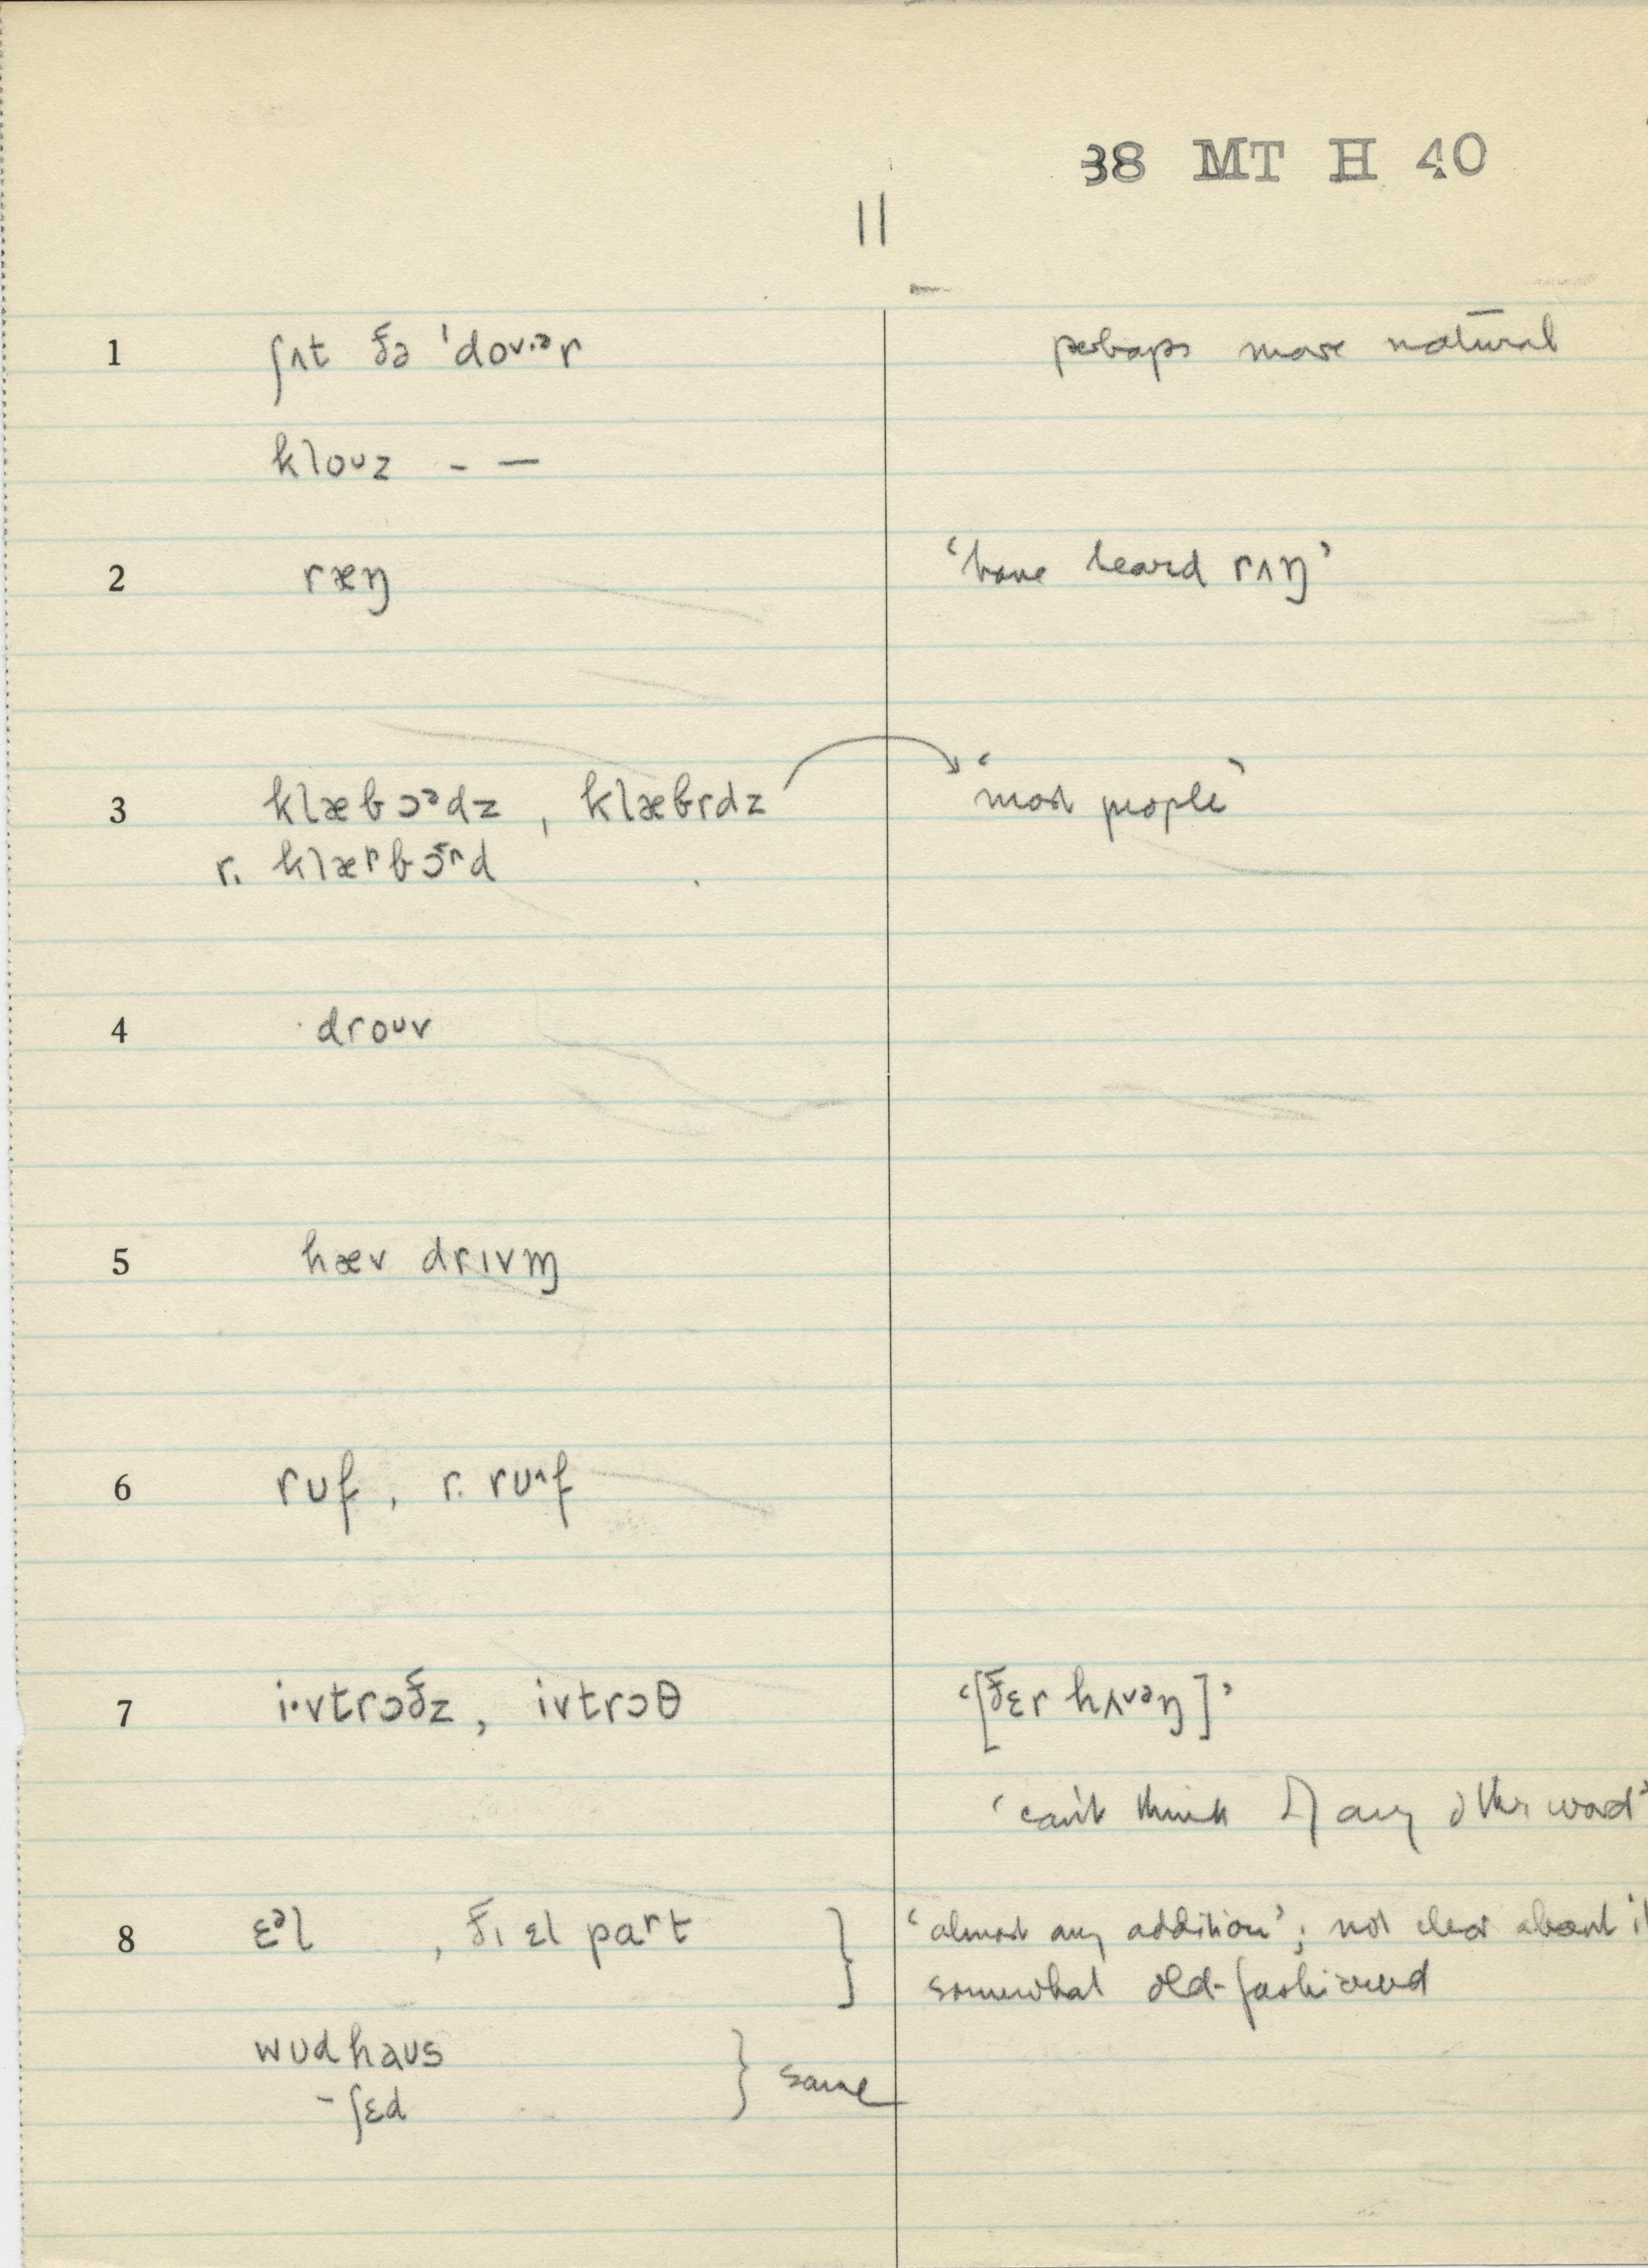 38 MT H 40
11
1 ʃʌt ðə ˈdoᴜ·ᵊr perhaps more natural
kloᴜz - —
2 ræŋ ‘have heard rʌŋ’
3 klæbɔᵊdz, klæbrdz ‘most people’
r. klæʳbɔ̄ʳd
4 droᴜv
5 hæv drɪvm̩
6 rᴜf, r. rᴜ^f
7 i·vtrɔðz, ivtrɔθ ‘[ðɛr hʌvᵊŋ]’
‘can't think of any other word’
8 ɛᵊl, ðɪ ɛl paʳt ‘almost any addition’; not clear about it
somewhat old-fashioned
wᴜdhaᴜs } same
-ʃɛd